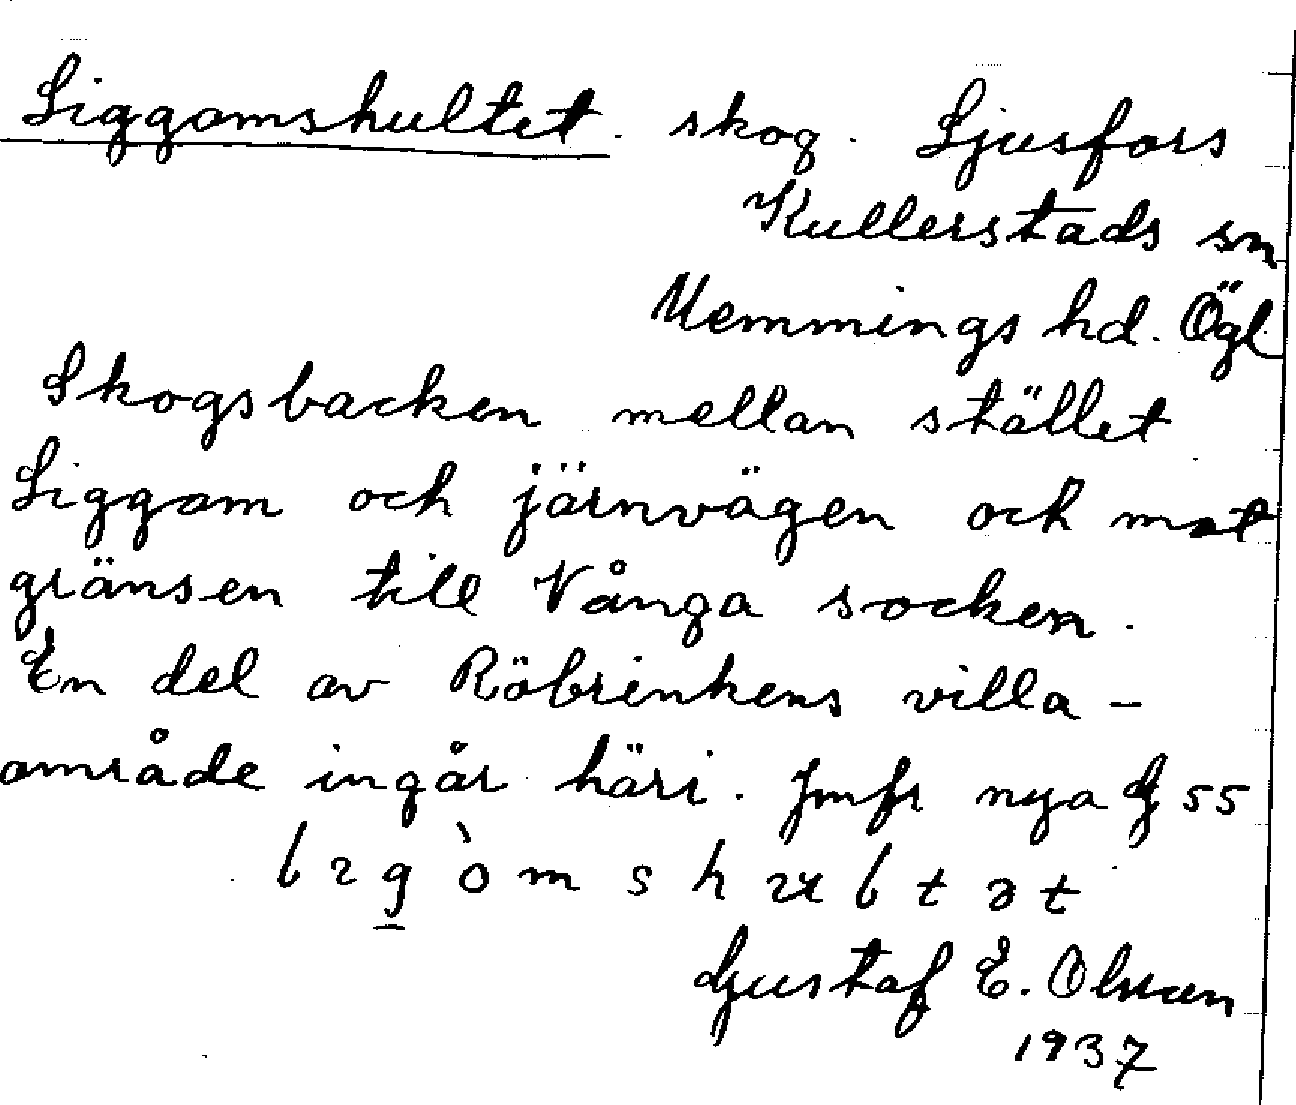 Liggamshultet. skog. Ljusfors
Kullerstads sn
Memmings hd. Ögl
Skogsbacken mellan stället
Liggam och järnvägen och mot
gränsen till Vånga socken.
En del av Röbrinkens villa-
område ingår häri. Jmfr nya G 55
Gustaf E. Olsson
1937